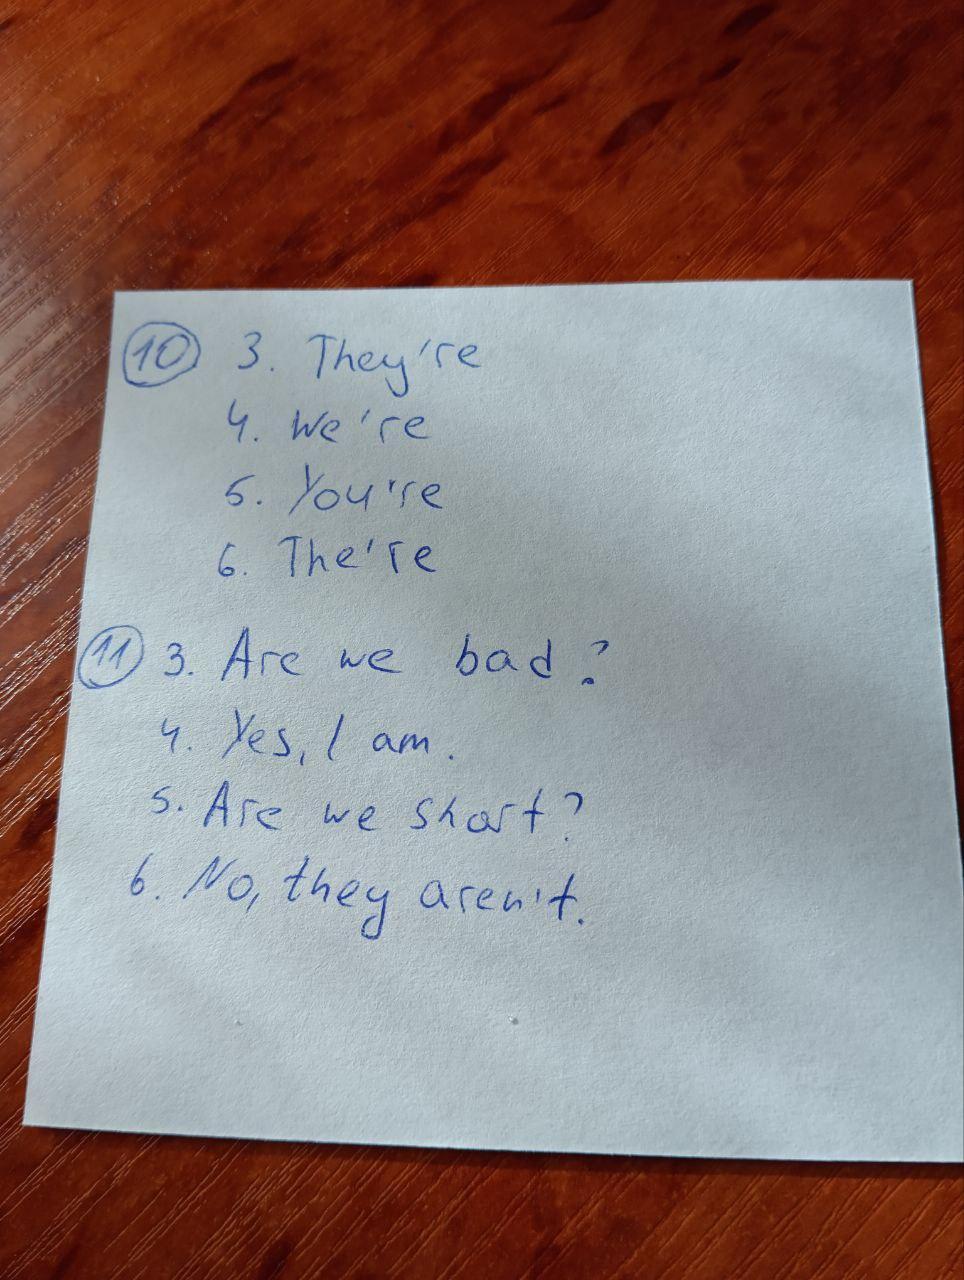 10 3. They're
4. We're
5. You're
6. The're
11 3. Are we bad?
4. Yes, I am.
5. Are we short?
6. No, they aren't.